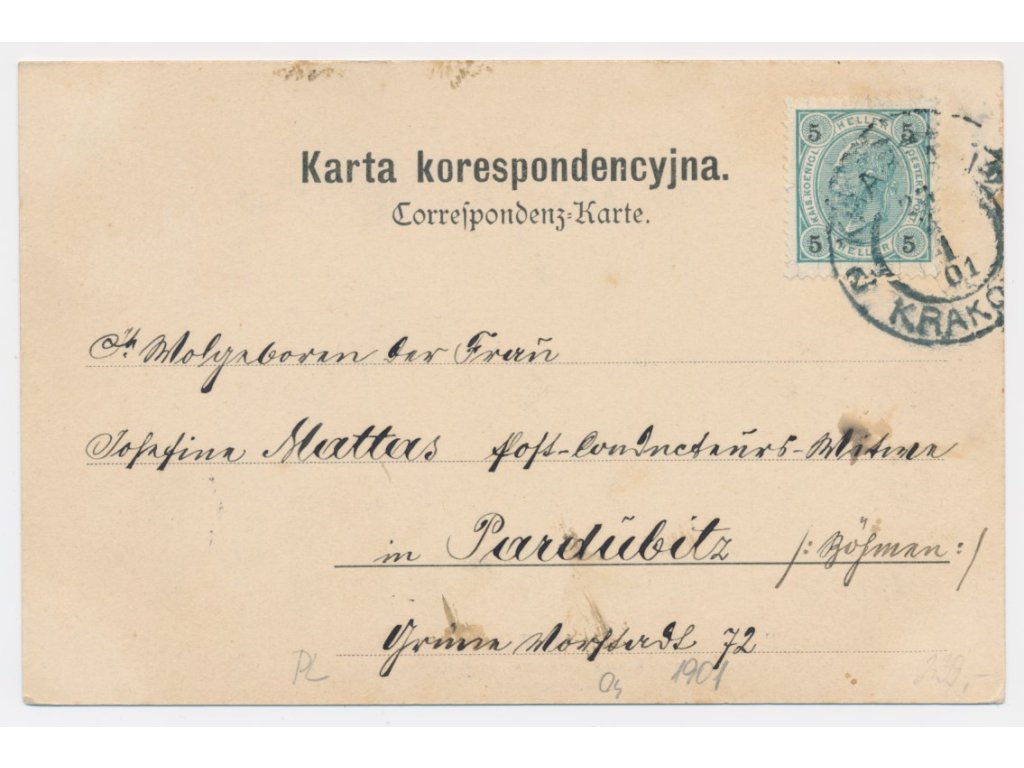 Karta korespondencyjna.
Correspondenz-Karte.
5 HELLER 5
KAIS. KOENIGL. OESTERR. POST
5 HELLER 5
1
01
KRAKO
Wolgeboren der Frau
Josefine Mattas Post-Conducteurs-Witwe
in Pardŭbitz /: Böhmen :/
Grüne Vorstadt 72
PL
1901
320,-